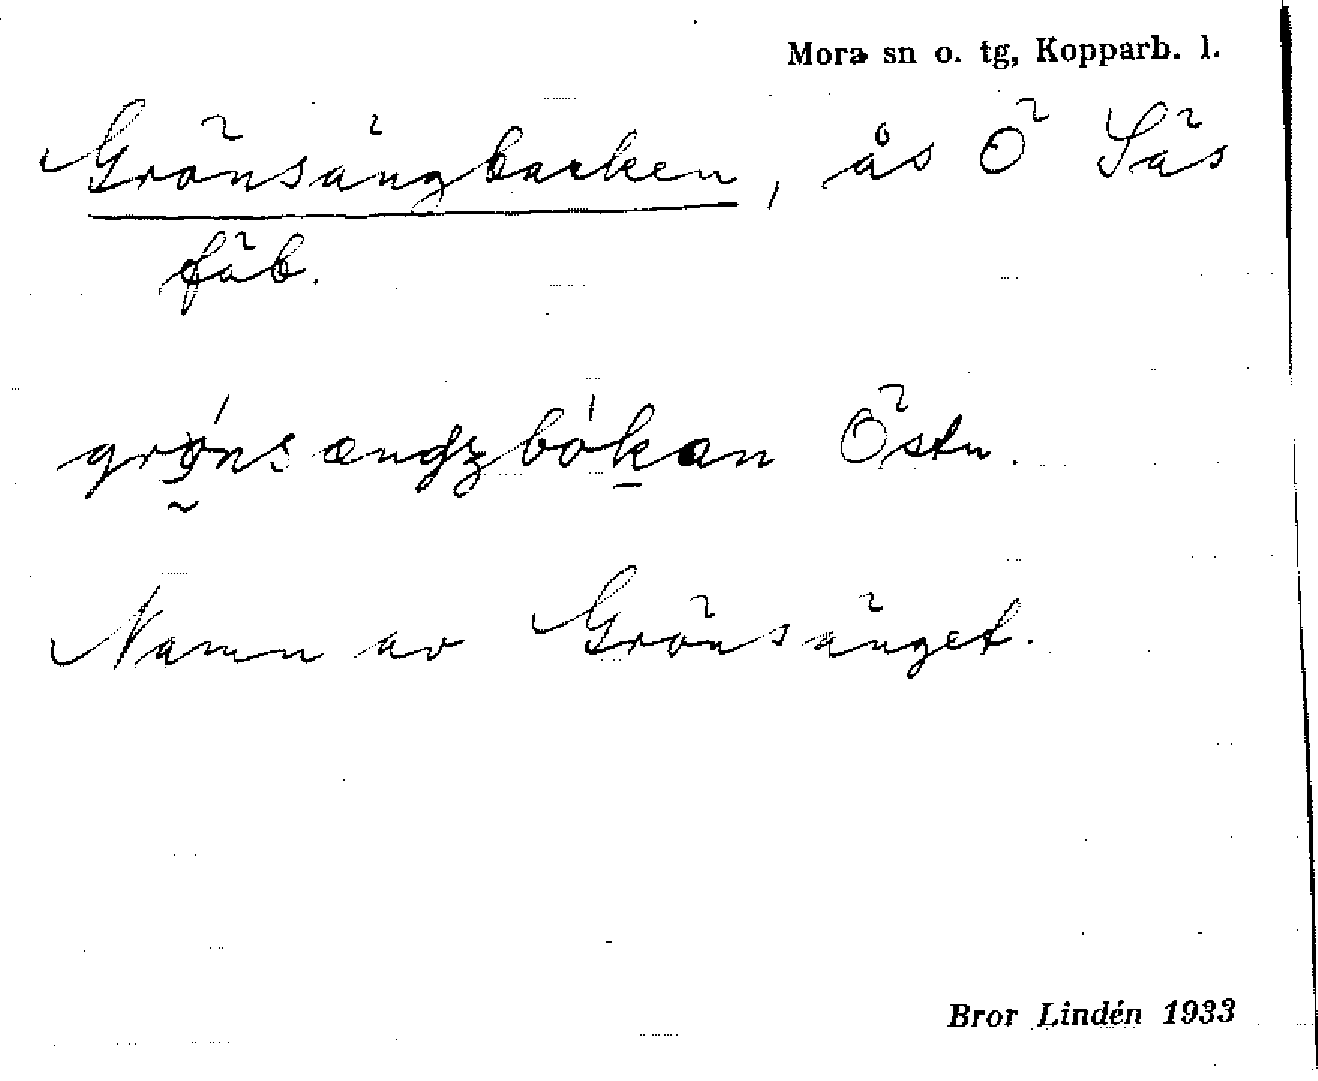 Mora sn o. tg, Kopparb. l.
Grönsängbacken, ås Ö Säs
fäb.
Östn.
Namn av Grönsänget.
Bror Lindén 1933